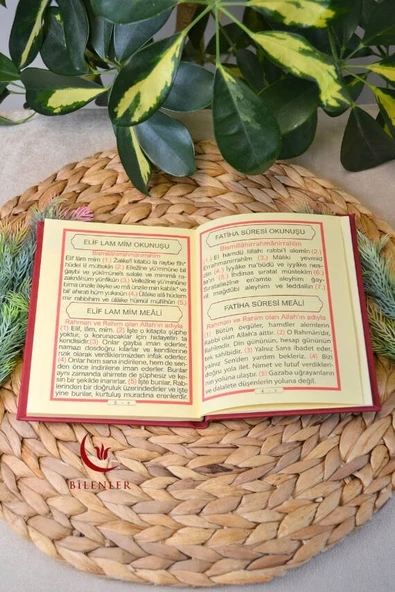 ELİF LAM MÎM OKUNUŞU
Bismillâhirrahmânirrahîm
Elif lâm mîm (1) Zâlikel kitâbü lâ raybe fîh
hüdel lil müttekîn (2) Ellezîne yü'minûne bil
gaybi ve yükîmûnes salate ve mimmâ ra-
zaknâhüm yünfikûn (3) Vellezîne yü'minûne
bimâ ünzile ileyke ve mâ ünzile min kablik ve
bil'ahireti hüm yûkınûn (4) Ülâike alâ hüdem
mir rabbihim ve ülâike hümül müflihûn (5)
ELİF LAM MÎM MEÂLİ
Rahman ve Rahim olan Allah'ın adıyla
(1) Elif, lâm, mîm. (2) İşte o kitapta şüphe
yoktur; o korunacaklar için hidayetin ta
kendisidir. (3) Onlar gayba iman ederler,
namazı dosdoğru kılarlar ve kendilerine
rızık olarak verdiklerimizden infak ederler.
(4) Onlar hem sana indirilene, hem de sen-
den önce indirilene iman ederler. Bunlar
aynı zamanda ahirete de şüphesiz ve ke-
sin bir şekilde inanırlar. (5) İşte bunlar, Rab-
lerinden bir doğruluk üzerindedirler ve işte
yine bunlar, kurtuluş muradına erenlerdir.
FATİHA SÛRESİ OKUNUŞU
Bismillâhirrahmânirrahîm
(1) El hamdü lillahi rabbi'l alemin (2)
Errahmânirrahîm (3) Mâliki yevmid
dîn (4) İyyâke na'büdü ve iyyâke nes-
te'în (5) İhdinas sıratal müstekîm (6)
Sıratallezîne en'amte aleyhim gay-
ril mağdûbi aleyhim ve leddallîn (7)
FATİHA SÛRESİ MEÂLİ
Rahman ve Rahim olan Allah'ın adıyla
(1) Bütün övgüler, hamdler alemlerin
Rabbi olan Allah'a aittir. (2) O Rahmandır,
Rahimdir. Din gününün, hesap gününün
tek sahibidir. (3) Yalnız Sana ibadet eder,
yalnız Senden yardım bekleriz. (4) Bizi
doğru yola ilet. Nimet ve lütuf verdikleri-
nin yoluna ulaştır. (5) Gazaba uğrayanların
ve dalalete düşenlerin yoluna değil.
BİLENLER